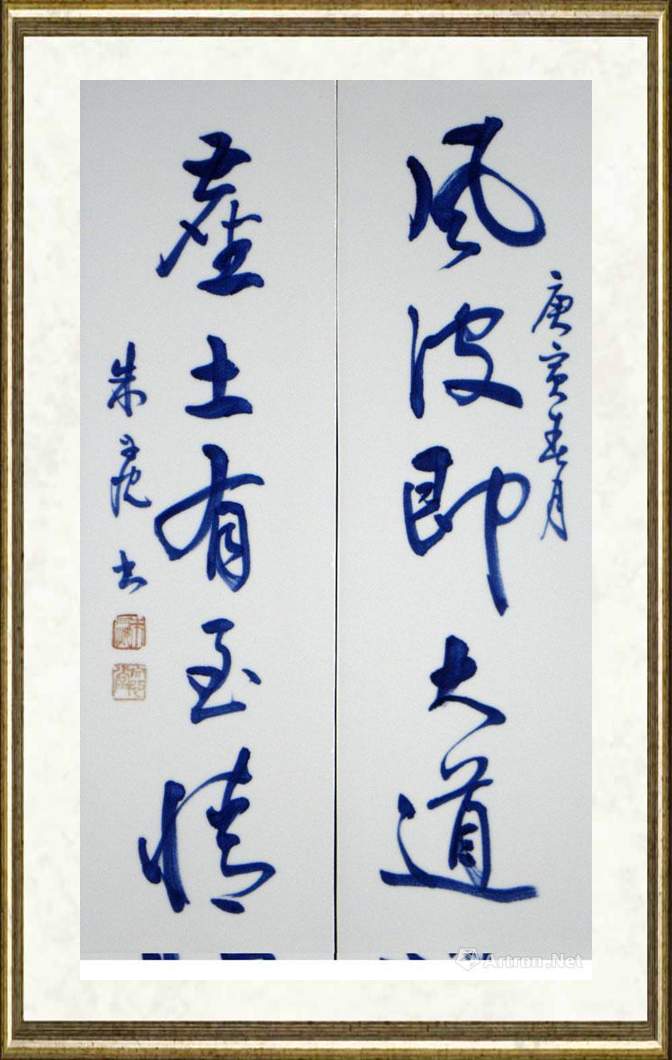 庚寅春月
風波即大道
塵土有至情
朱 书
Artron.Net